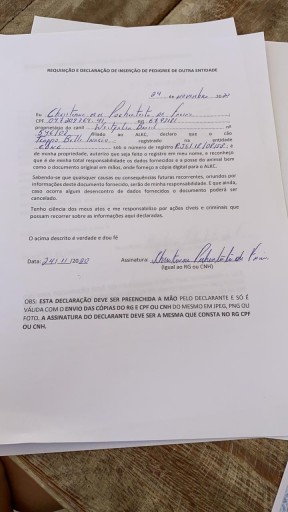 REQUISIÇÃO E DECLARAÇÃO DE INSERÇÃO DE PEDIGREE DE OUTRA ENTIDADE
24 de novembro 20
Eu Christiane
CPF RG
proprietário do canil nº
filiado ao ALEC, declaro que o cão
registrado na entidade
sob o número de registro é
de minha propriedade, autorizo que seja feito o registro em meu nome, e reconheço
que é de minha total responsabilidade os dados fornecidos e a posse do animal bem
como o documento original em mãos, onde forneço a cópia digital para o ALEC.
Sabendo-se que quaisquer causas ou consequências futuras recorrentes, oriundos por
informações deste documento fornecido, serão de minha responsabilidade. E que ainda,
caso ocorra algum desencontro de dados fornecidos o documento poderá ser
cancelado.
Tenho ciência dos meus atos e me responsabilizo por ações cíveis e criminais que
possam recorrer sobre as informações aqui declaradas.
O acima descrito é verdade e dou fé
Data: 24/11/2020 Assinatura:
(Igual ao RG ou CNH)
OBS: ESTA DECLARAÇÃO DEVE SER PREENCHIDA A MÃO PELO DECLARANTE E SÓ É
VÁLIDA COM O ENVIO DAS CÓPIAS DO RG E CPF OU CNH DO MESMO EM JPEG, PNG OU
FOTO. A ASSINATURA DO DECLARANTE DEVE SER A MESMA QUE CONSTA NO RG CPF
OU CNH.